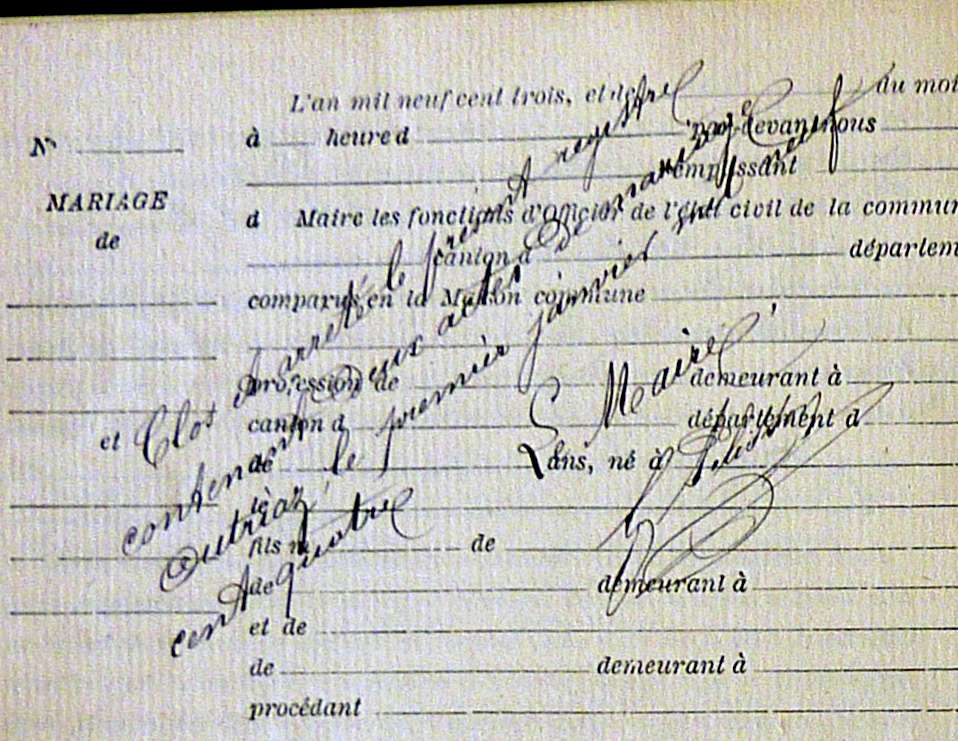 L'an mil neuf cent trois, et le du moi
N° à heure d par-devant nous
remplissant
MARIAGE d Maire les fonctions d'Officier de l'état civil de la commun
de canton d départem
comparus en la Maison commune
profession de demeurant à
canton d département d
et de ans, né à
le
fils m de
de demeurant à
et de
de demeurant à
procédant
Clos et arrêté le présent registre
contenant deux actes de mariage
Outriaz, le premier janvier mil neuf
cent quatre
Le Maire